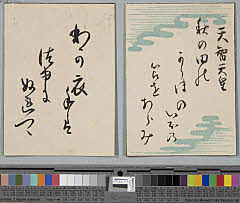 天智天皇
秋の田の
かりほの
いほの
とまをあらみ
わか衣手は
つゆに
ぬれつゝ